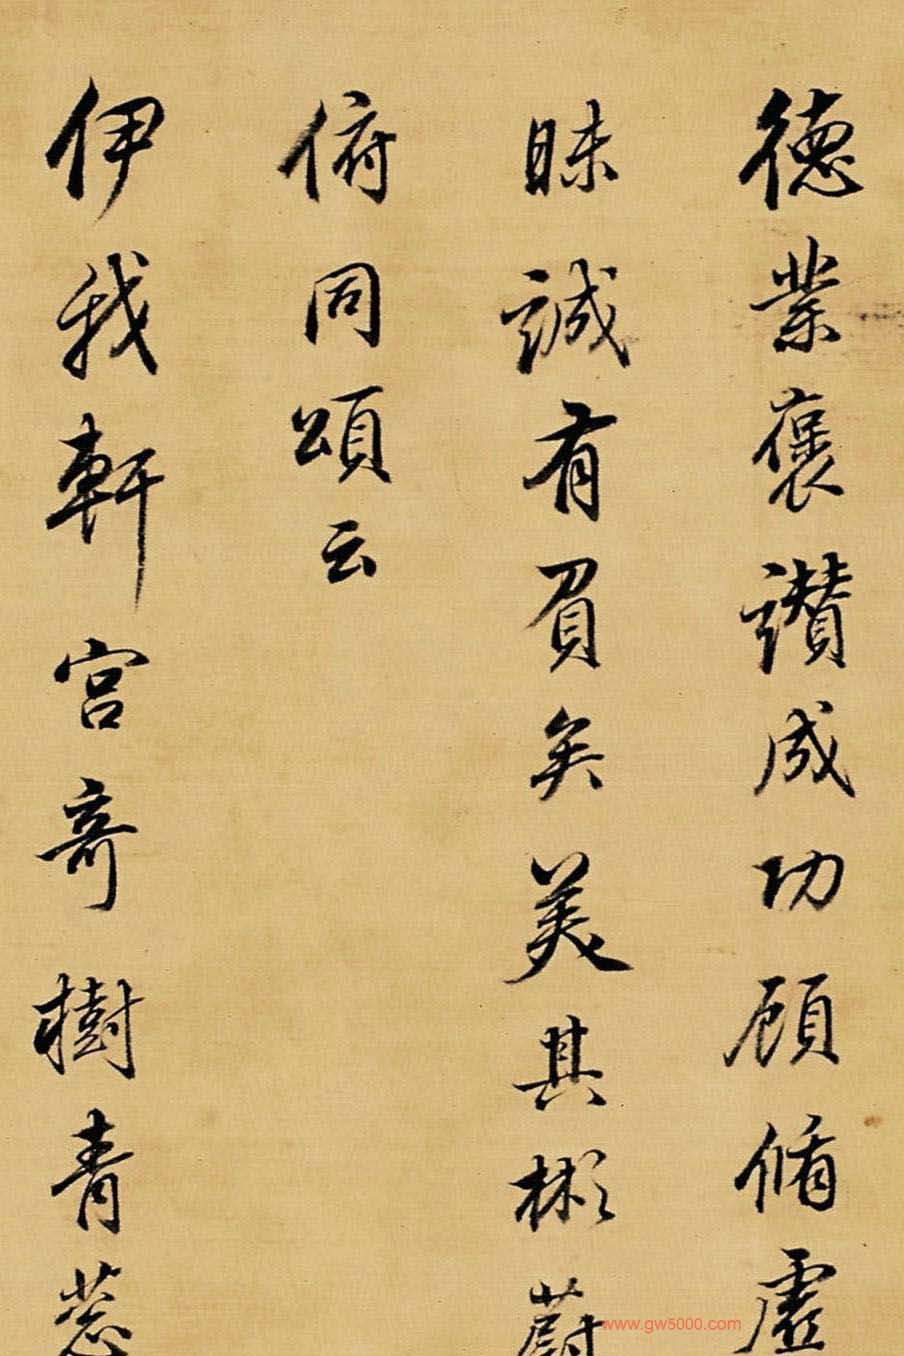 德業褒讚成功顧循虛
昧誠有負矣美其彬蔚
俯同頌云
伊我軒宮奇樹青蔥
www.gw5000.com